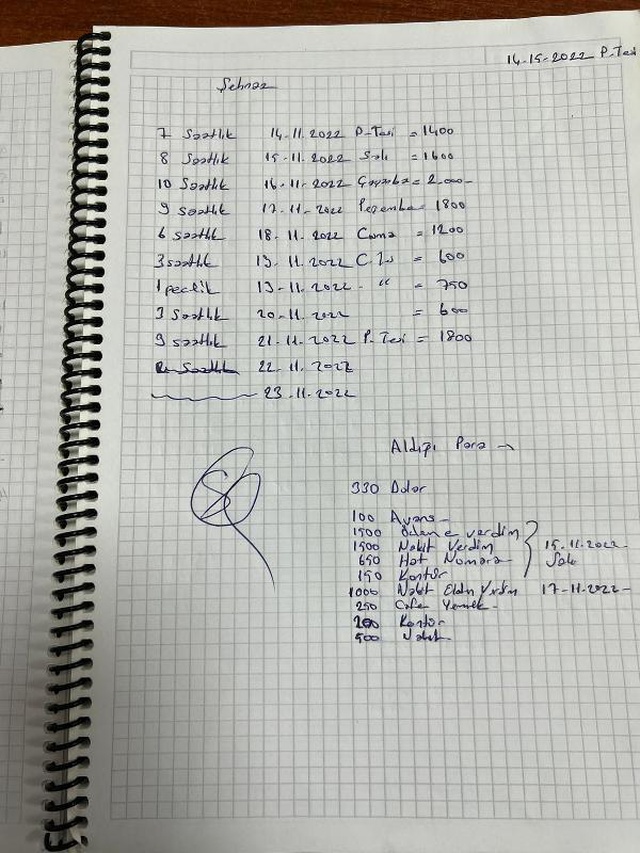 14-15-2022 P.Tesi
Şehnaz
7 Saatlik 14-11.2022 P-Tesi = 1400
8 Saatlik 15-11.2022 Salı = 1600
10 Saatlik 16-11.2022 Çarşamba = 2.000-
9 Saatlik 17-11-2022 Perşembe = 1800
6 saatlik 18-11.2022 Cuma = 1200
3 saatlik 19-11.2022 C.Ts = 600
1 pecelik 19-11.2022 - " = 750
3 Saatlik 20-11.2022 = 600
9 saatlik 21.11.2022 P.Tesi = 1800
Saatlik 22.11.2022
23.11.2022
Aldığı Para →
330 Dolar
100 Avans-
1500 ödeme verdim
1500 Nakit Verdim 15.11.2022-
650 Hat Numara- Salı
150 Kontör
1000 Nakit Elden Verdim 17-11-2022-
250 Cafe Yemek-
200 Kontör
500 Nakit